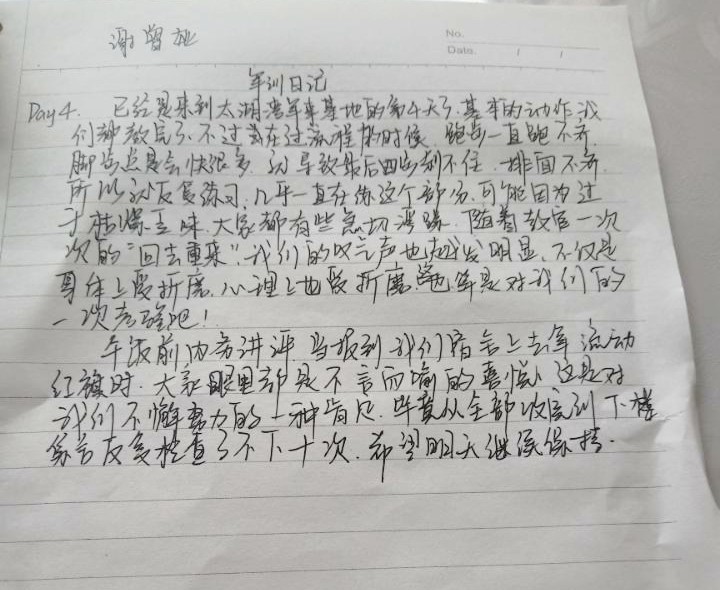 谢曾
No.
Date. / /
军训日记
Day4. 已经是来到太湖湾军事基地的第4天了.基本的动作我
们都教完了.不过在过流程的时候.跑步一直跑不齐.
脚步总是会快很多.就导致最后四步刹不住.排面不齐.
所以就反复练习.几乎一直在练这个部分.可能因为过
于枯燥乏味.大家都有些急切浮躁.随着教官一次
次的“回去重来”.我们的叹气声也越发明显.不仅是
身体上受折磨.心理上也受折磨.也算是对我们的
一次考验吧!
午饭前内务讲评.当报到我们宿舍上去拿流动
红旗时.大家眼里都是不言而喻的喜悦.这是对
我们不懈努力的一种肯定.毕竟从全部收完到下楼
宿舍反复检查了不下十次.希望明天继续保持.